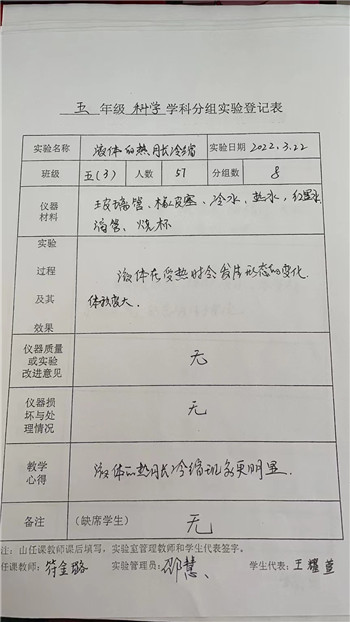 五 年级 科学 学科分组实验登记表
实验名称 液体的热胀冷缩 实验日期 2022.3.22
班级 五(3) 人数 57 分组数 8
仪器 玻璃管、橡皮塞、冷水、热水、红墨水
材料 滴管、烧杯
实验
过程 液体在受热时会发生形态的变化.
及其 体积变大.
效果
仪器质量
或实验 无
改进意见
仪器损
坏与处 无
理情况
教学 液体的热胀冷缩现象更明显.
心得
备注 (缺席学生) 无
注:由任课教师课后填写,实验室管理教师和学生代表签字。
任课教师: 符金璐 实验管理员: 邵慧 学生代表: 王耀萱